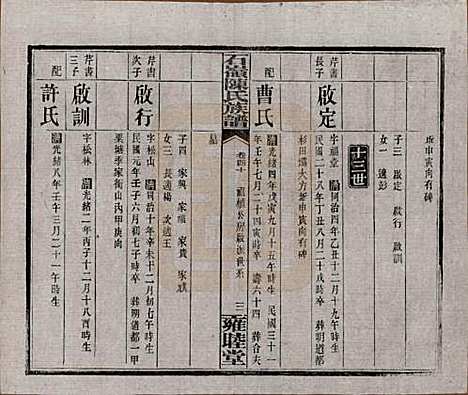 塚申寅向有碑
子三 啟定 啟行 啟訓
女一 適彭
十三世
芹書長子 啟定
字福堂 清同治四年乙丑十二月十九午時生
民國二十八年丁丑八月二十戌時卒 葬明道都
杉田塅大方申寅向有碑
配 曹氏
清光緒四年戊寅九月十五午時生 民國三十一
年壬午七月二十四寅時卒 壽六十四 葬合夫
石嶺陳氏族譜
卷四十
世系
三
雍睦堂
墓
子四 家興 家順 家貴 家驥
女三 長適楊 次適王
芹書次子 啟行
字松山 清同治十年辛未十二月初七子時生
民國元年壬子六月初七子時卒 葬明道都一甲
栗塘李家衝山丙甲庚向
芹書三子 啟訓
字松林 清光緒二年丙子十二月十八酉時生
配 許氏
清光緒八年壬午三月二十一午時生